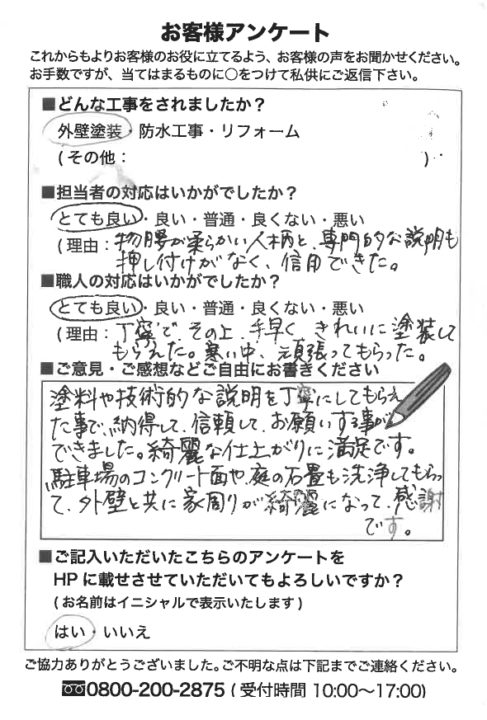 お客様アンケート
これからもよりお客様のお役に立てるよう、お客様の声をお聞かせください。
お手数ですが、当てはまるものに○をつけて私供にご返信下さい。
■どんな工事をされましたか？
外壁塗装・防水工事・リフォーム
(その他： )
■担当者の対応はいかがでしたか？
とても良い・良い・普通・良くない・悪い
(理由：物腰が柔らかい人柄と、専門的な説明も
押し付けがなく、信用できた。
■職人の対応はいかがでしたか？
とても良い・良い・普通・良くない・悪い
(理由：丁寧で、その上、手早く、きれいに塗装して
もらえた。寒い中、頑張ってもらった。
■ご意見・ご感想などご自由にお書きください
塗料や技術的な説明を丁寧にしてもらえ
た事で、納得して、信頼して、お願いする事が
できました。綺麗な仕上がりに満足です。
駐車場のコンクリート面や、庭の石畳も洗浄してもらっ
て、外壁と共に家周りが綺麗になって、感謝
です。
■ご記入いただいたこちらのアンケートを
HPに載せさせていただいてもよろしいですか？
(お名前はイニシャルで表示いたします)
はい・いいえ
ご協力ありがとうございました。ご不明な点は下記までご連絡ください。
0800-200-2875 (受付時間 10:00〜17:00)